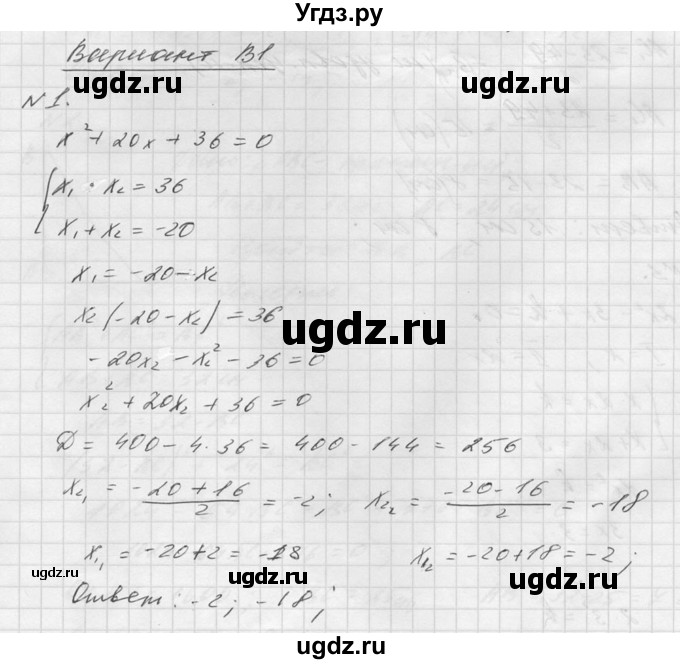 Угдз.ру
Вариант В1
ugdz.ru ugdz.ru
№1.
x² + 20x + 36 = 0
{ x₁ · x₂ = 36
x₁ + x₂ = -20
x₁ = -20 - x₂
x₂(-20 - x₂) = 36
ugdz.ru
-20x₂ - x₂² - 36 = 0
x₂² + 20x₂ + 36 = 0
Д = 400 - 4·36 = 400 - 144 = 256
x₂₁ = (-20 + 16)/2 = -2; x₂₂ = (-20 - 16)/2 = -18
ugdz.ru ugdz.ru
x₁₁ = -20 + 2 = -18 x₁₂ = -20 + 18 = -2;
ugdz.ru ugdz.ru
Ответ: -2; -18;
ugdz.ru ugdz.ru